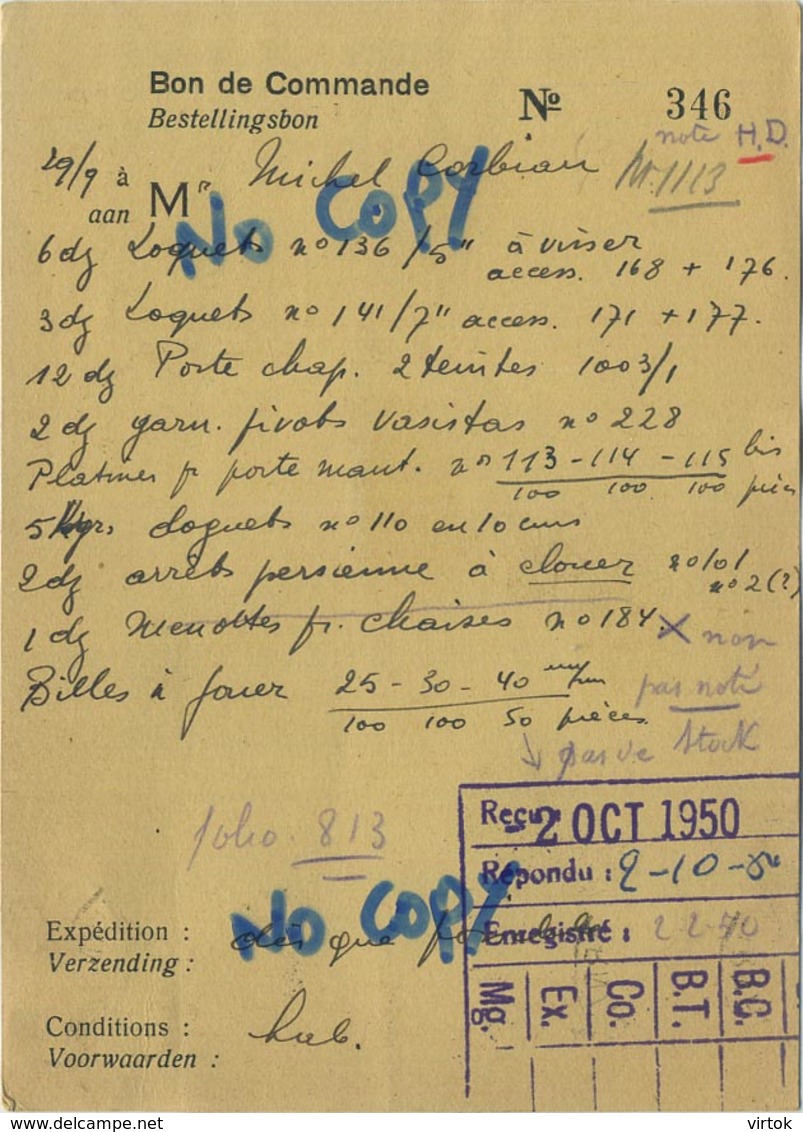 Bon de Commande
Bestellingsbon
No 346
note H.D.
29/9 à
aan Mr Michel Corbiau No 1113
6 dz Loquets no 136/5" à visser
access. 168 + 176.
3 dz Loquets no 141/7" access. 171 + 177.
12 dz Porte chap. 2 teintes 1003/1
2 dz garn. pivots vasistas no 228
Platines pr porte mant. nos 113 - 114 - 115 bis
100 100 100 pièces
5 Loquets no 110 en 10 cms
2 dz arrêts persienne à clouer no 101
no 2 (?)
1 dz Menottes pr. chaises no 184. X non
Billes à jouer 25 - 30 - 40 mm pas noté
100 100 50 pièces
pas de stock
folio. 813
Reçu: -2 OCT 1950
Répondu : 2-10-50
Enregistré :
Expédition : dès que possible
Verzending :
Conditions : hab.
Voorwaarden :
Mg. Ex. Co. B.T. B.C.
No COPY
No COPY
delcampe.net
virtok